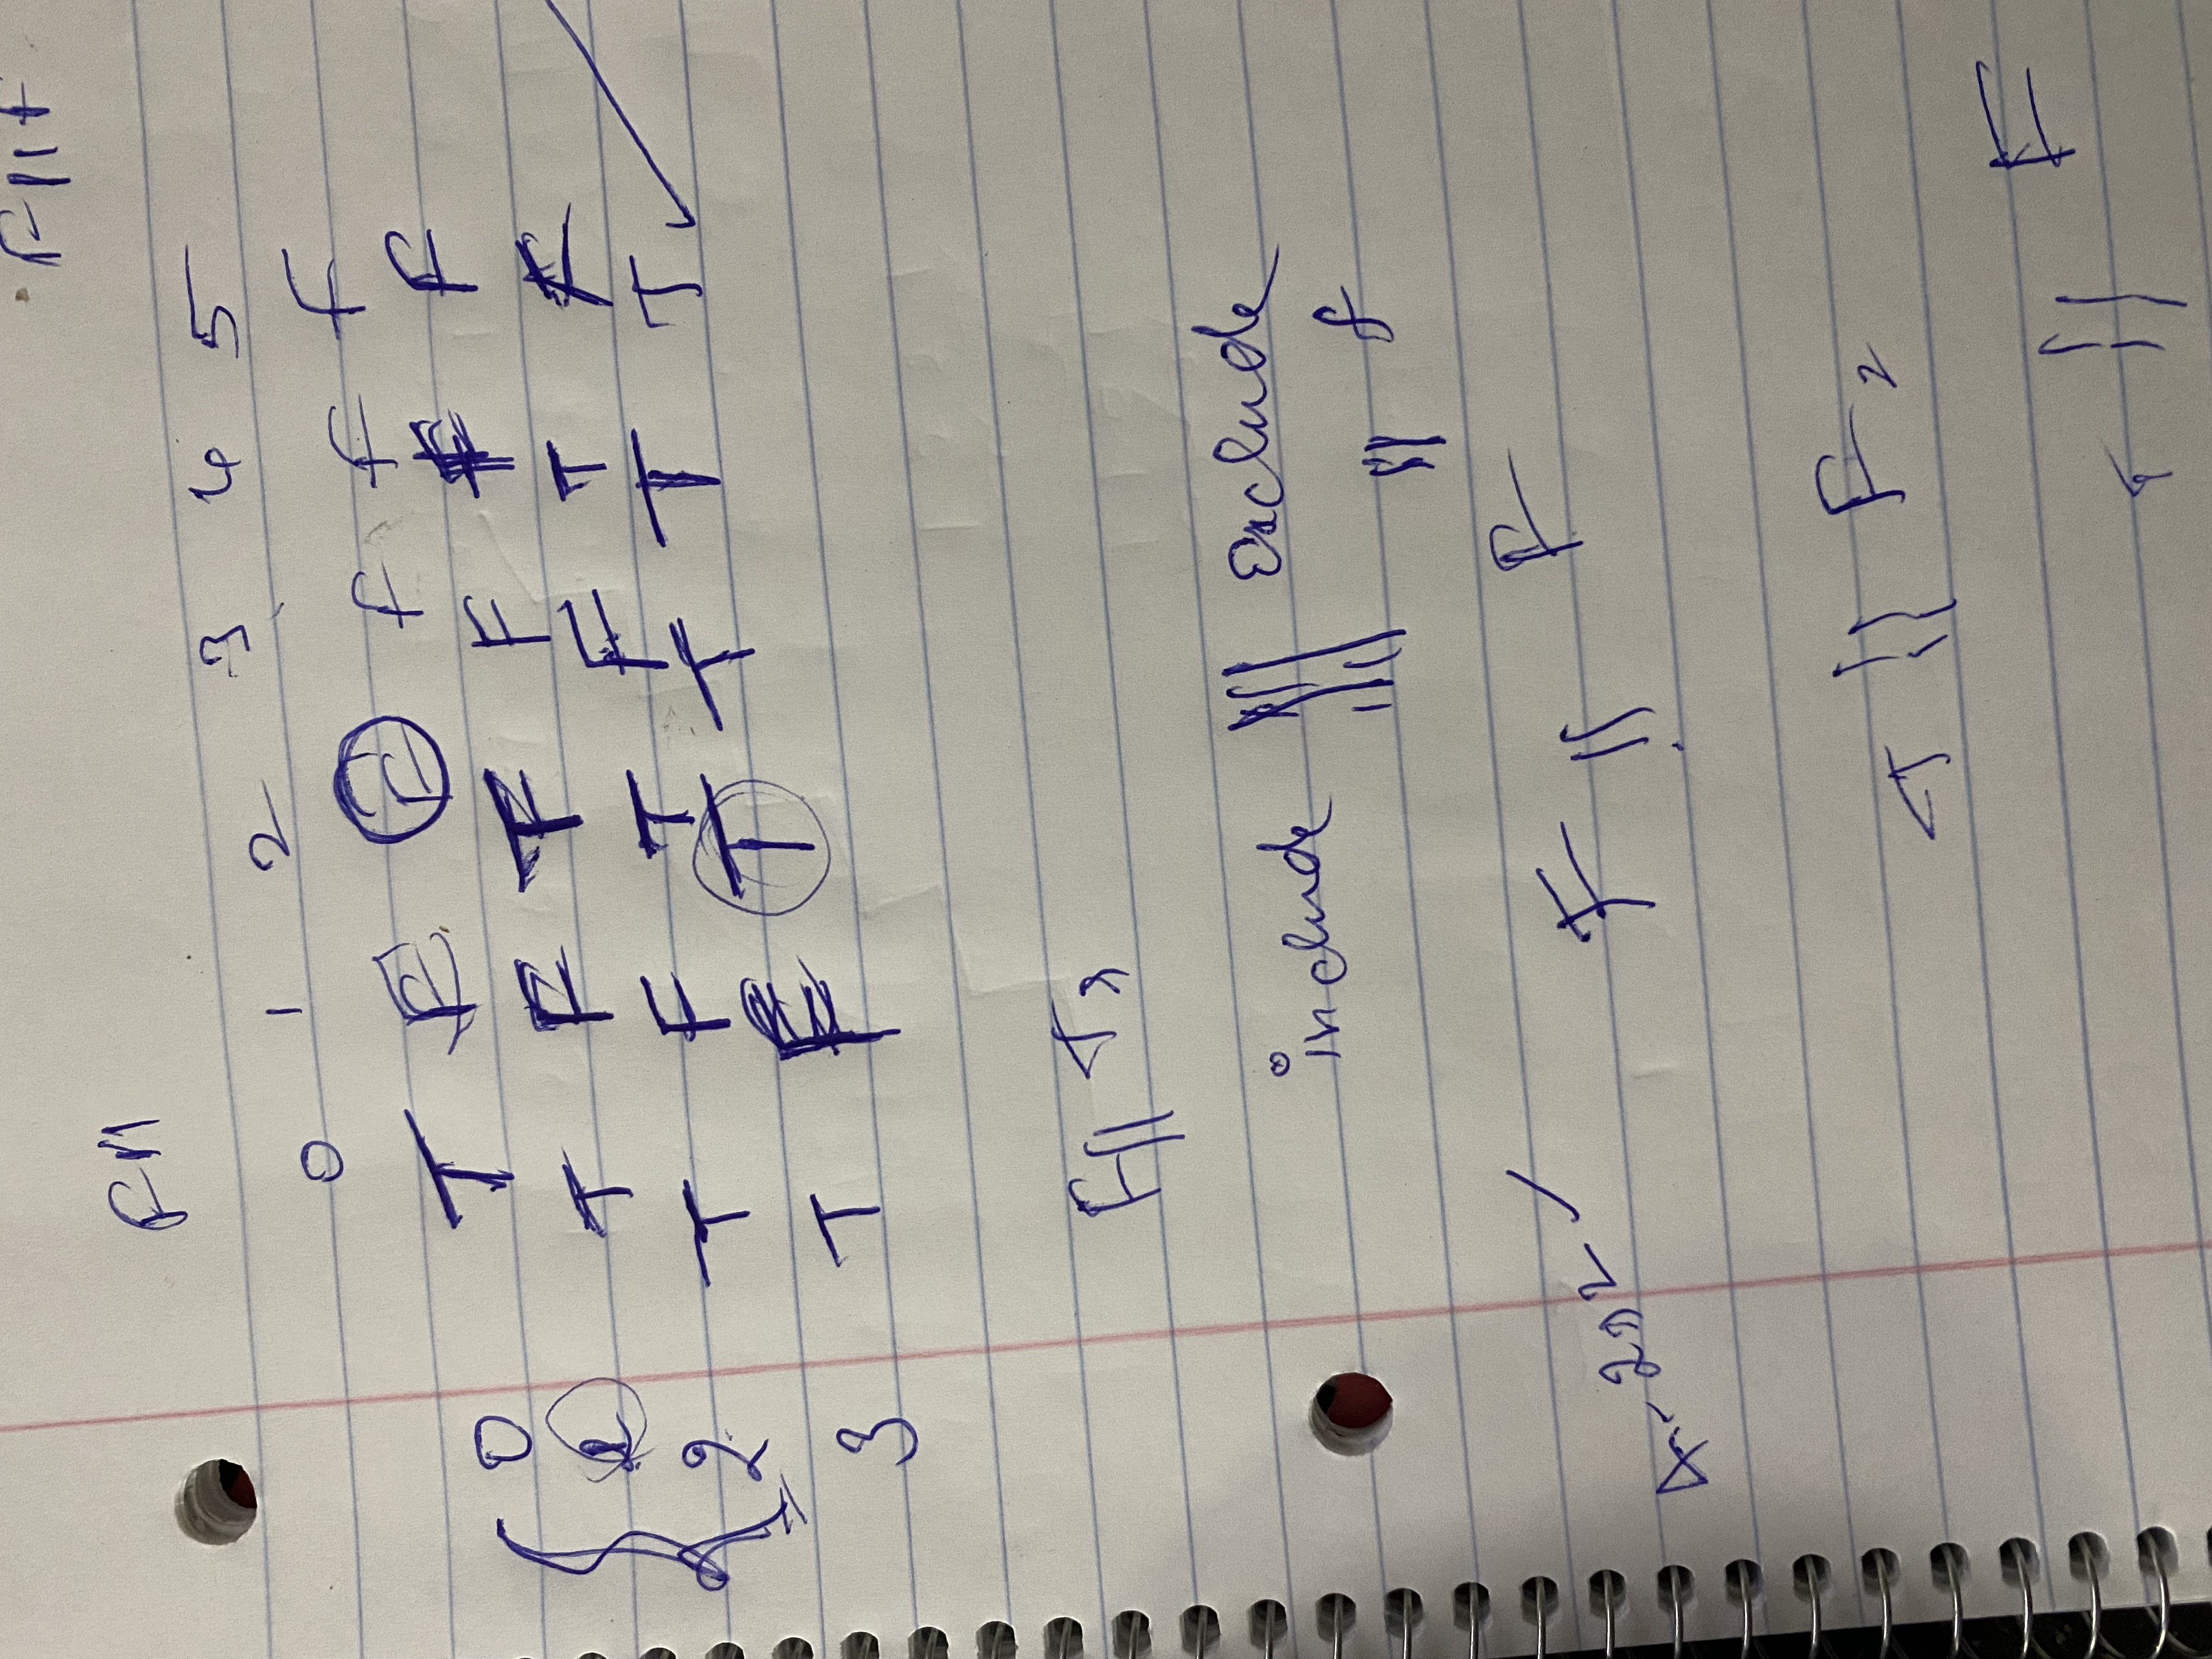 F||F
F||
0 1 2 3 4 5
0 T F F F F F
1 T F F F F F
2 T F T F T F
3 T F T T T T
F|| T
include || exclude
|| f
4-2=2 ✓
F || F
T || F
|| F